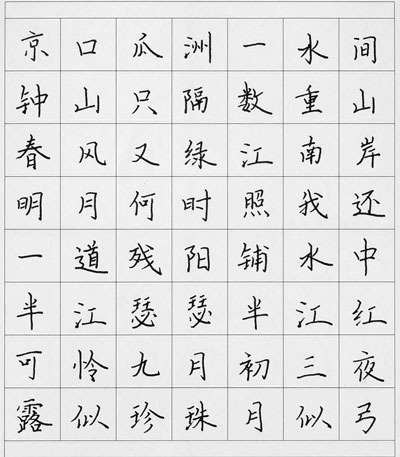 京口瓜洲一水间
钟山只隔数重山
春风又绿江南岸
明月何时照我还
一道残阳铺水中
半江瑟瑟半江红
可怜九月初三夜
露似珍珠月似弓